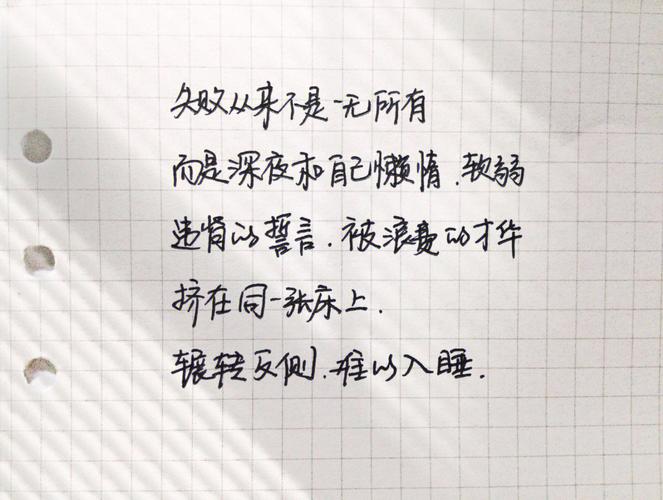 失败从来不是一无所有
而是深夜和自己懒惰.软弱
违背的誓言.被浪费的才华
挤在同一张床上.
辗转反侧.难以入睡.